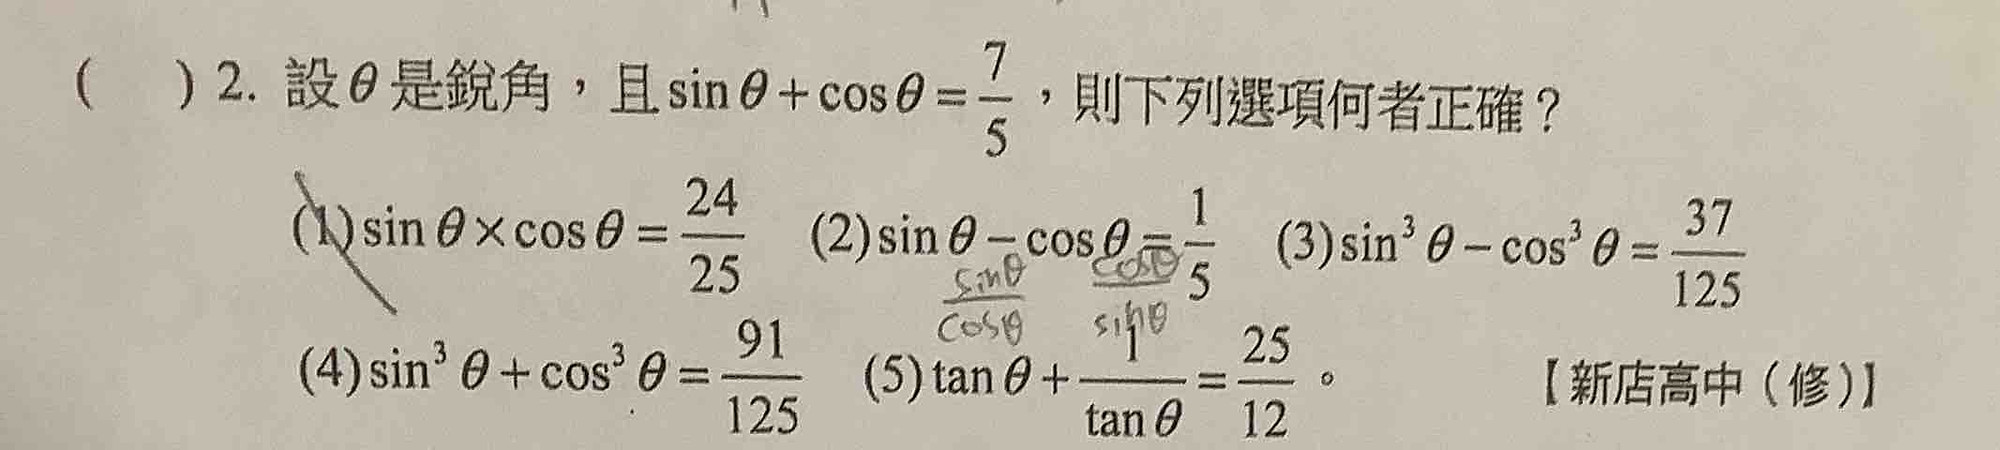 ( ) 2. 設θ是銳角，且sinθ+cosθ=7/5，則下列選項何者正確？
(1)sinθ×cosθ=24/25 (2)sinθ−cosθ=1/5 (3)sin³θ−cos³θ=37/125
sinθ/cosθ cosθ/sinθ
(4)sin³θ+cos³θ=91/125 (5)tanθ+1/tanθ=25/12。 【新店高中（修）】